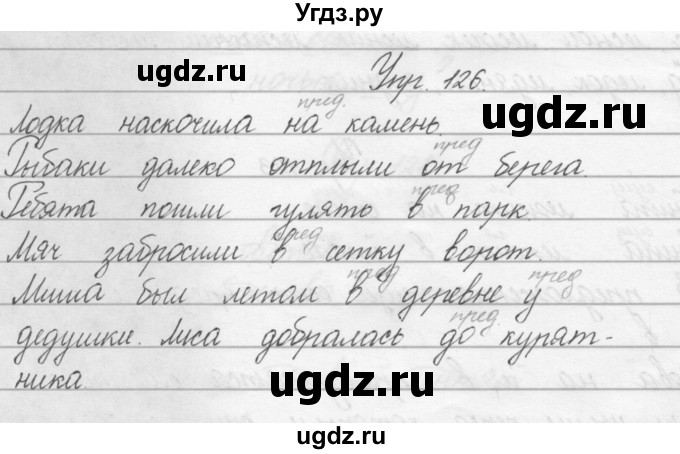 Угдз.ру
ugdz.ru
Упр. 126.
ugdz.ru
пред.
Лодка наскочила на камень.
пред
Рыбаки далеко отплыли от берега.
пред
Ребята пошли гулять в парк.
пред
Мяч забросили в сетку ворот.
пред. пред
Миша был летом в деревне у
пред.
дедушки. Лиса добралась до курят-
ника.
ugdz.ru
ugdz.ru